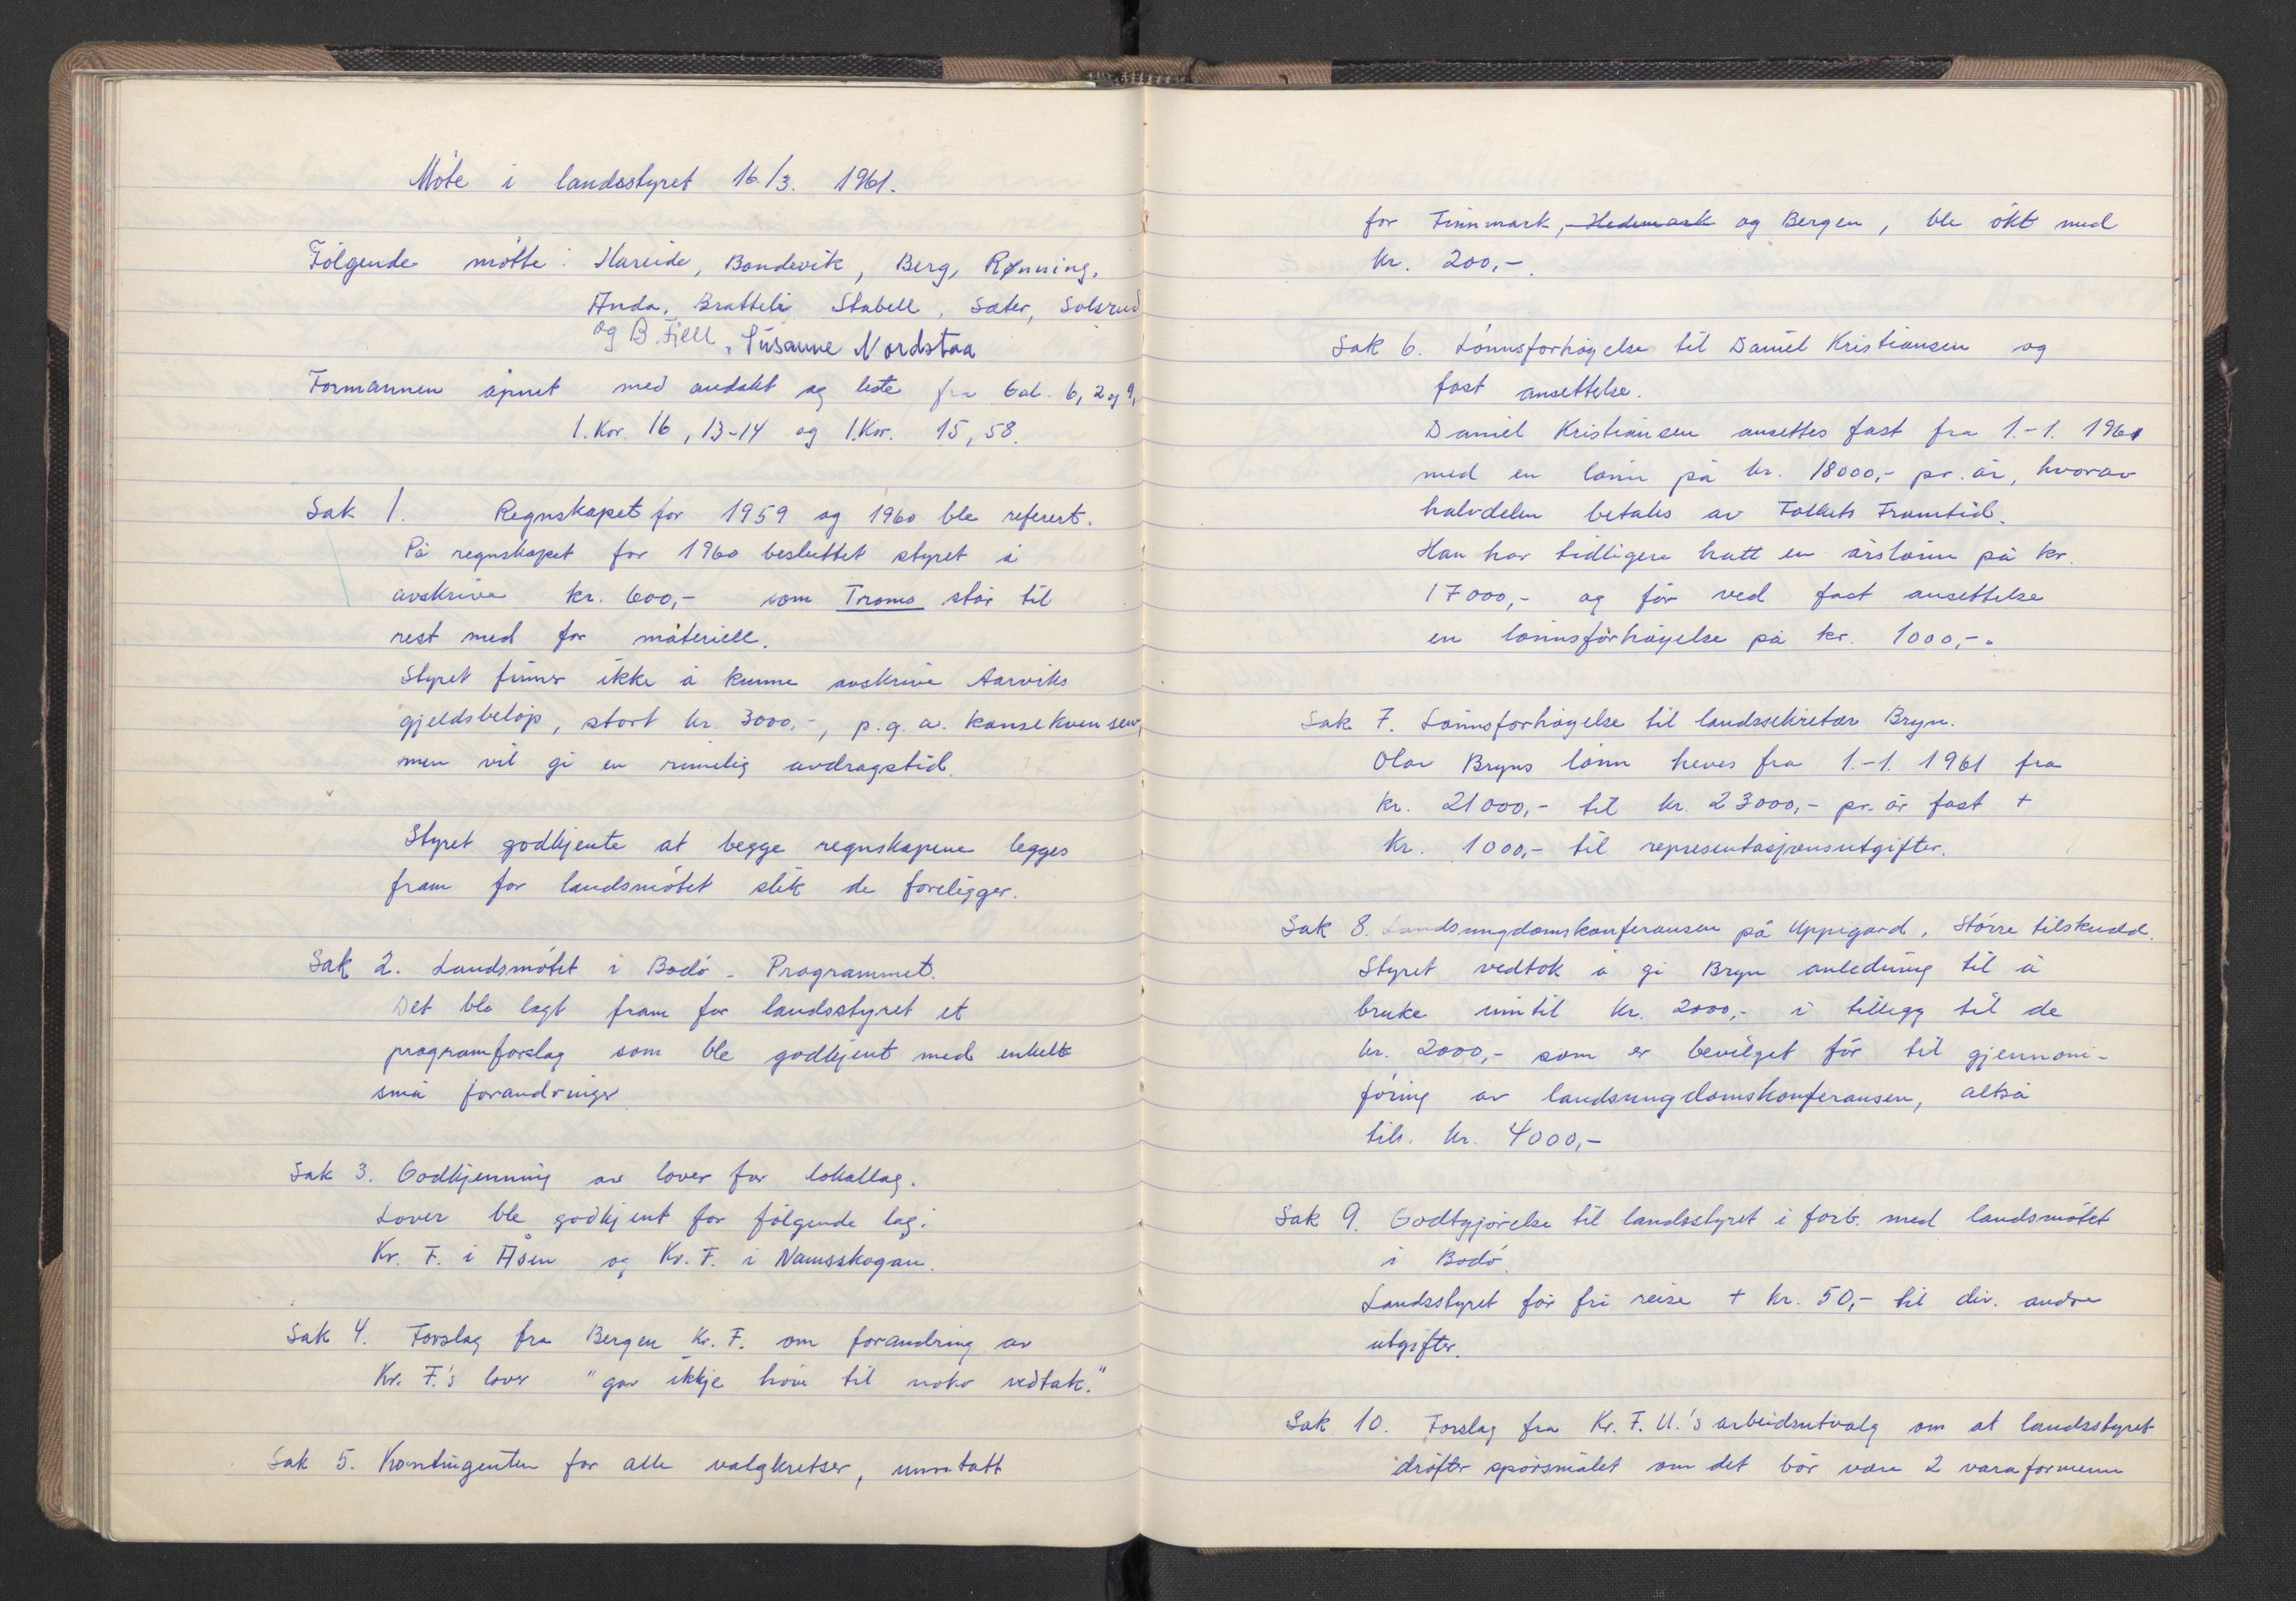 Möte i landsstyret 16./3. 1961.
Fölgende mötte: Hareide, Bondevik, Berg, Rønning,
Anda, Bratteli, Stabell, Sæter, Solsrud
og B. Fjell, Susanne Nordstaa
Formannen åpnet med andakt og leste fra Gal. 6, 2 og 9,
1. Kor. 16, 13-14 og 1. Kor. 15, 58.
Sak 1. Regnskapet for 1959 og 1960 ble referert.
På regnskapet for 1960 besluttet styret å
avskrive kr. 600,- som Troms står til
rest med for materiell.
Styret finner ikke å kunne avskrive Aarviks
gjeldsbelöp, stort kr. 3000,-, p.g.a. konsekvensen,
men vil gi en rimelig avdragstid.
Styret godkjente at begge regnskapene legges
fram for landsmötet slik de foreligger.
Sak 2. Landsmötet i Bodö - Programmet.
Det ble lagt fram for landsstyret et
programforslag som ble godkjent med enkelte
små forandringer
Sak 3. Godkjenning av lover for lokallag.
Lover ble godkjent for fölgende lag:
Kr. F. i Åsen og Kr. F. i Namsskogan.
Sak 4. Forslag fra Bergen Kr. F. om forandring av
Kr. F.'s lover "gav ikkje höve til noko vedtak."
Sak 5. Kontingenten for alle valgkretser, unntatt
for Finnmark, Hedemark og Bergen, ble ökt med
kr. 200,-.
Sak 6. Lönnsforhöyelse til Daniel Kristiansen og
fast ansettelse.
Daniel Kristiansen ansettes fast fra 1.-1. 1961
med en lönn på kr. 18000,- pr. år, hvorav
halvdelen betales av Folkets Framtid.
Han har tidligere hatt en årslönn på kr.
17000,- og får ved fast ansettelse
en lönnsforhöyelse på kr. 1000,-.
Sak 7. Lönnsforhöyelse til landssekretær Bryn.
Olav Bryns lönn heves fra 1.-1. 1961 fra
kr. 21000,- til kr. 23000,- pr. år fast +
kr. 1000,- til representasjonsutgifter.
Sak 8. Landsungdomskonferansen på Uppigard, Större tilskudd.
Styret vedtok å gi Bryn anledning til å
bruke inntil kr. 2000,- i tillegg til de
kr. 2000,- som er bevilget för til gjennom-
föring av landsungdomskonferansen, altså
tils. kr. 4000,-
Sak 9. Godtgjörelse til landsstyret i forb. med landsmötet
i Bodö.
Landsstyret får fri reise + kr. 50,- til div. andre
utgifter.
Sak 10. Forslag fra Kr. F. U.'s arbeidsutvalg om at landsstyret
dröfter spörsmålet om det bör være 2 varaformenn